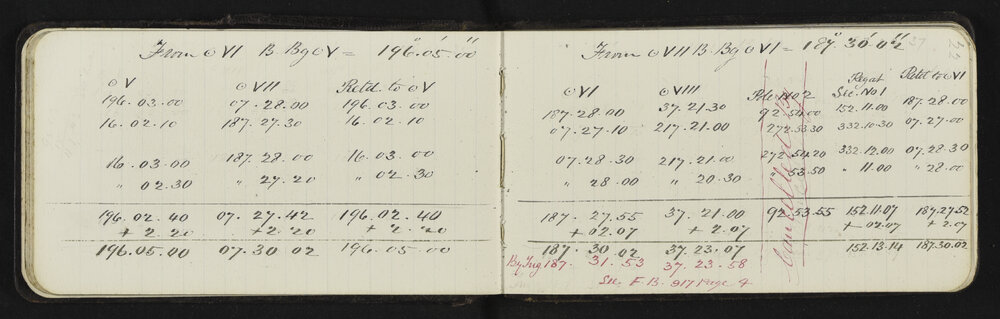 From ⊙VI B. Bg ⊙V = 196°.05'.00"
⊙V ⊙VII Retd. to ⊙V
196.03.00 07.28.00 196.03.00
16.02.10 187.27.30 16.02.10
16.03.00 187.28.00 16.03.00
" 02.30 " 27.20 " 02.30
196.02.40 07.27.42 196.02.40
+ 2.20 + 2.20 + 2.20
196.05.00 07.30 02 196.05.00
From ⊙VII B. Bg ⊙VI = 187°.30'.02"
⊙VI ⊙VIII Pole No 2 Sec. No 1 Retd to ⊙VI
187.28.00 37.21.30 92.54.00 152.11.00 187.28.00
07.27.10 217.21.00 272.53.30 332.10.30 07.27.00
07.28.30 217.21.00 272.54.20 332.12.00 07.28.30
" 28.00 " 20.30 " 53.50 " 11.00 " 28.00
187.27.55 37.21.00 92.53.55 152.11.07 187.27.52
+ 02.07 + 2.07 + 02.07 + 2.07
187.30.02 37.23.07 152.13.14 187.30.02
Cancelled
By Trig 187. 31.53 37.23.58
See F.B. 917 Page 4